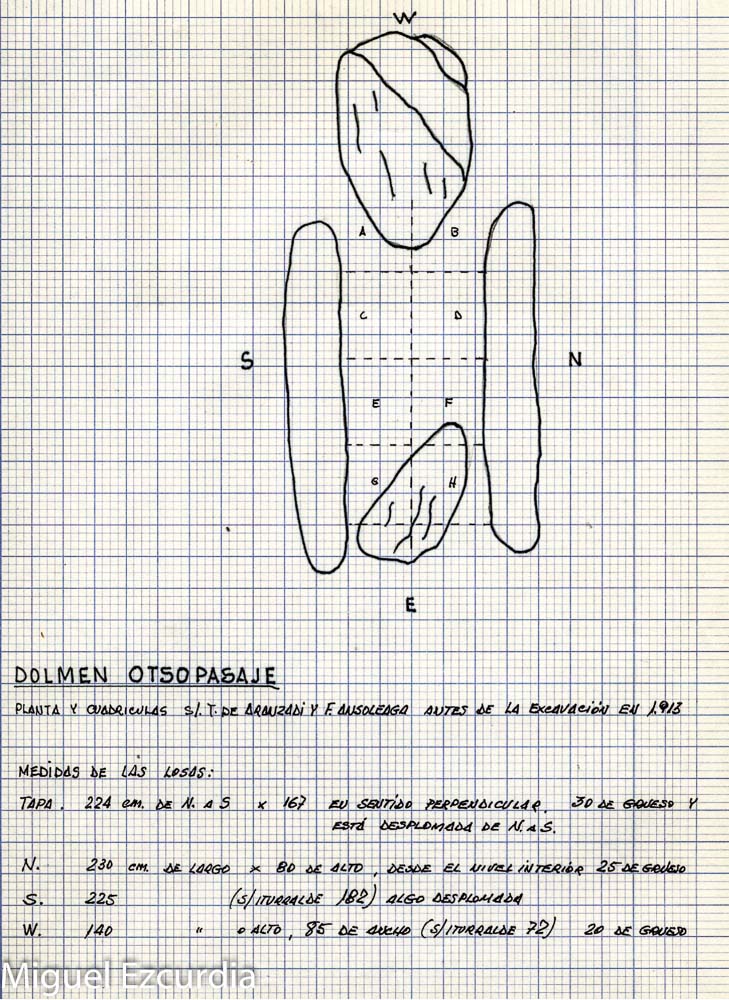 W
A B
C D
S N
E F
G H
E
DOLMEN OTSOPASAJE
PLANTA Y CUADRICULAS S/. T. DE ARANZADI Y F. ANSOLEAGA ANTES DE LA EXCAVACIÓN EN 1.913
MEDIDAS DE LAS LOSAS:
TAPA. 224 cm. DE N. A S × 167 EN SENTIDO PERPENDICULAR. 30 DE GRUESO Y
ESTÁ DESPLOMADA DE N. A S.
N. 230 cm. DE LARGO × 80 DE ALTO, DESDE EL NIVEL INTERIOR 25 DE GRUESO
S. 225 (S/ITURRALDE 182) ALGO DESPLOMADA
W. 140 " o ALTO, 85 DE ANCHO (S/ITURRALDE 72) 20 DE GRUESO
Miguel Ezcurdia